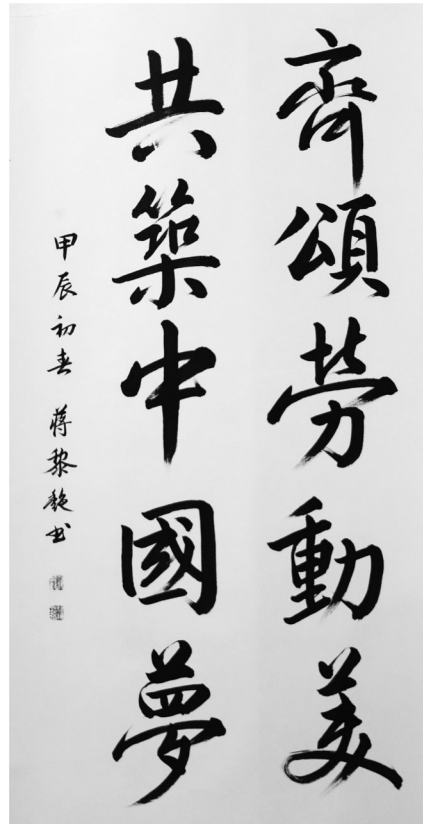 齊頌劳動美
共築中國夢
甲辰初春 蔣黎艷书